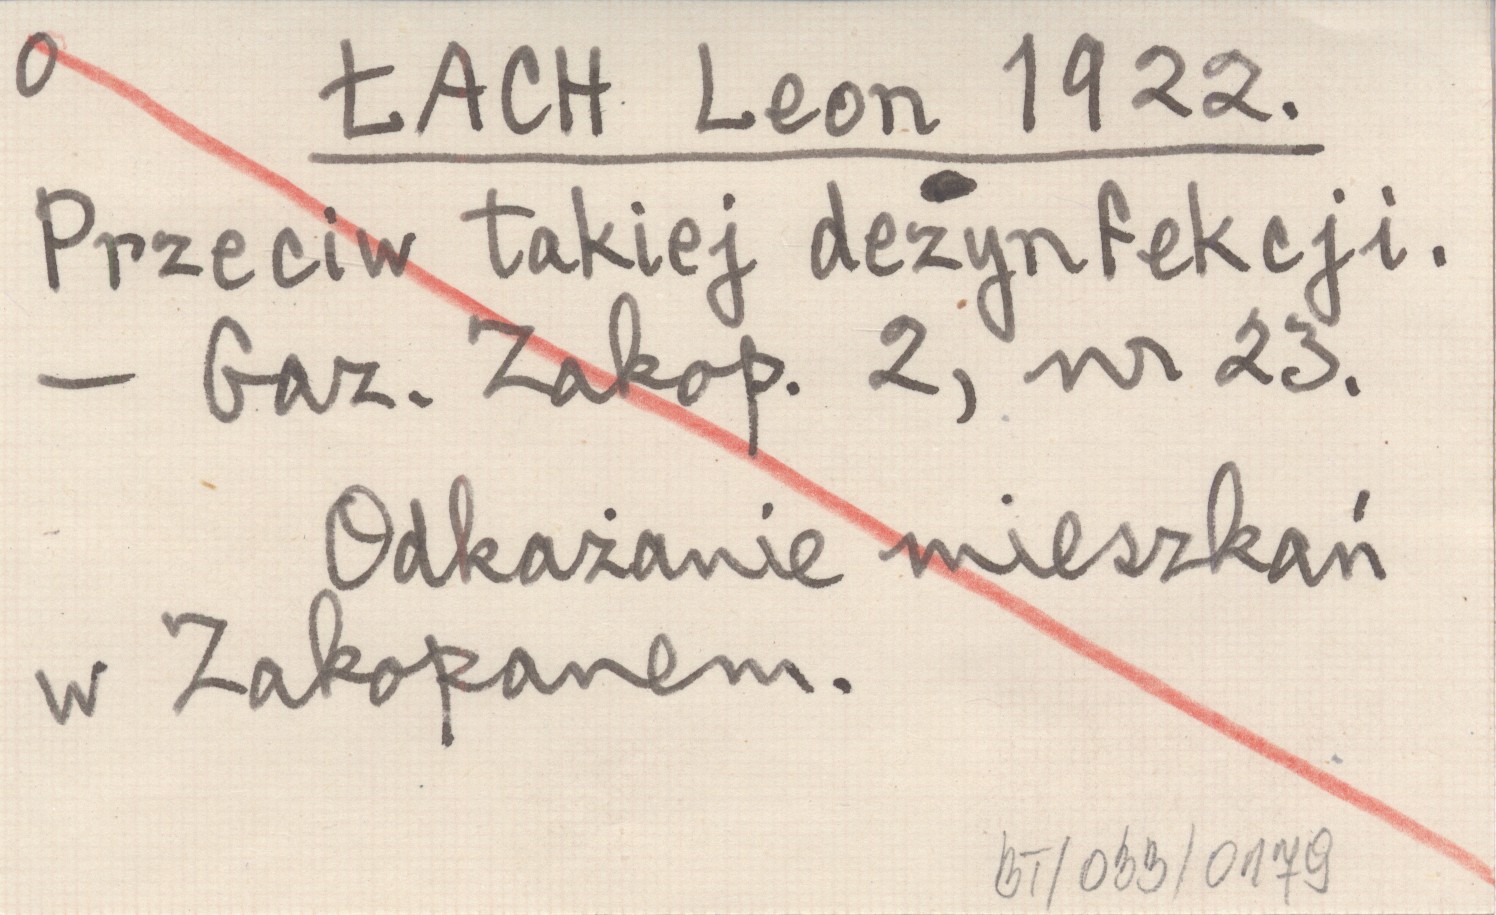 0 ŁACH Leon 1922.
Przeciw takiej dezynfekcji.
— Gaz. Zakop. 2, nr 23.
Odkażanie mieszkań
w Zakopanem.
BT/033/0179